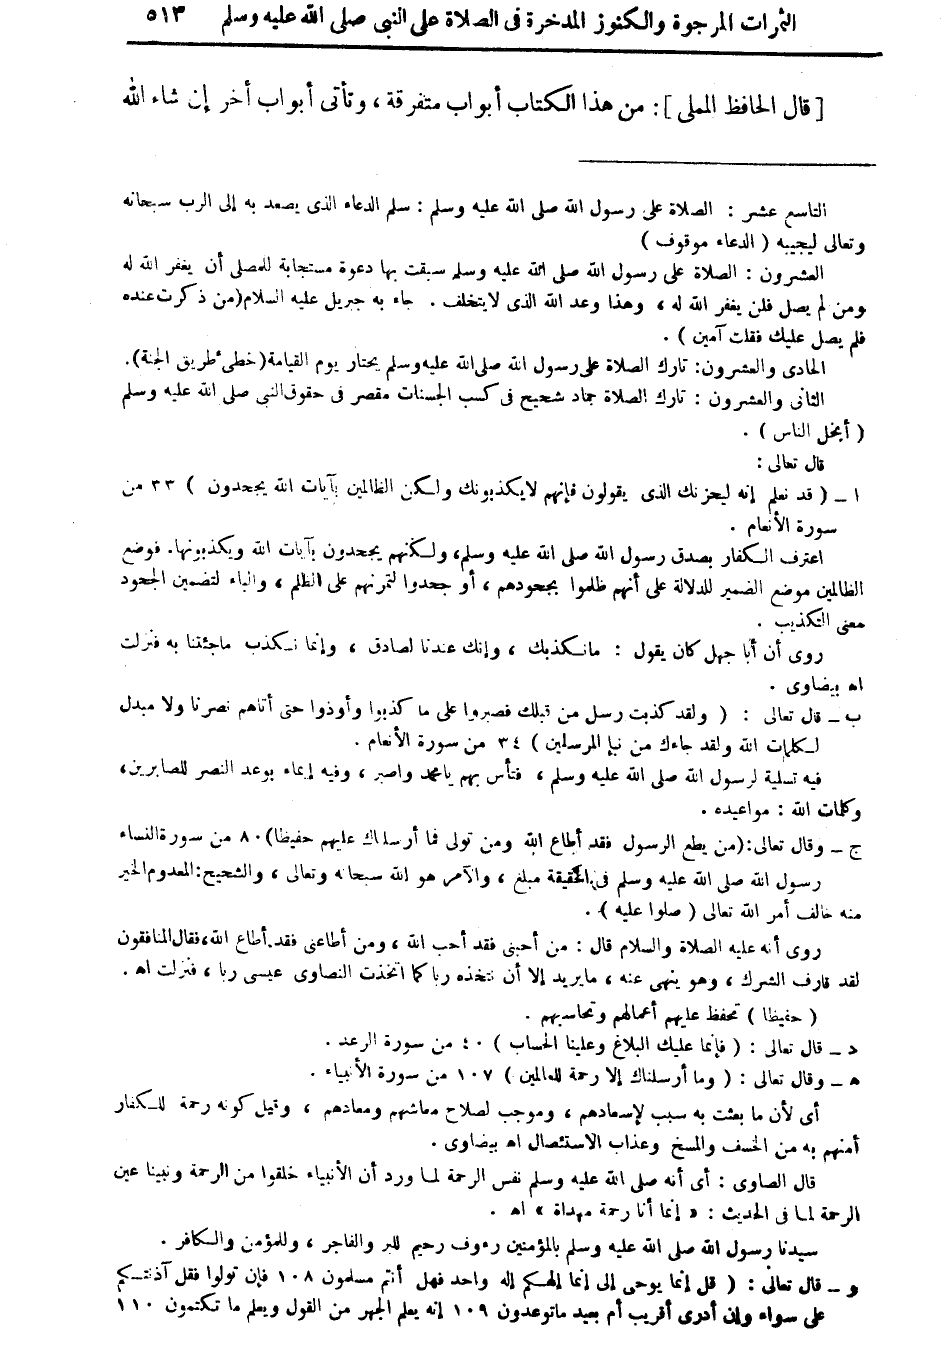 الثمرات المرجوة والكنوز المدخرة فى الصلاة على النبى صلى الله عليه وسلم ٥١٣
[ قال الحافظ المملى ] : من هذا الكتاب أبواب متفرقة ، وتأتى أبواب أخر إن شاء الله
التاسع عشر : الصلاة على رسول الله صلى الله عليه وسلم : سلم الدعاء الذى يصعد به إلى الرب سبحانه
وتعالى ليجيبه ( الدعاء موقوف )
العشرون : الصلاة على رسول الله صلى الله عليه وسلم سبقت بها دعوة مستجابة للمصلى أن يغفر الله له
ومن لم يصل فلن يغفر الله له ، وهذا وعد الله الذى لايتخلف . جاء به جبريل عليه السلام (من ذكرت عنده
فلم يصل عليك فقلت آمين ) .
الحادى والعشرون : تارك الصلاة على رسول الله صلى الله عليه وسلم يحتار يوم القيامة (خطى ُ طريق الجنة).
الثانى والعشرون : تارك الصلاة جماد شحيح فى كسب الحسنات مقصر فى حقوق النبى صلى الله عليه وسلم
( أبخل الناس ) .
قال تعالى :
ا ــ ( قد نعلم إنه ليحزنك الذى يقولون فإنهم لايكذبونك ولكن الظالمين بآيات الله يجحدون ) ٣٣ من
سورة الأنعام .
اعترف الكفار بصدق رسول الله صلى الله عليه وسلم، ولكنهم يجحدون بآيات الله ويكذبونها. فوضع
الظالمين موضع الضمير للدلالة على أنهم ظلموا بجحودهم ، أو جحدوا لتمرنهم على الظلم ، والباء لتضمين الجحود
معنى التكذيب .
روى أن أبا جهل كان يقول : مانكذبك ، وإنك عندنا لصادق ، وإنما نكذب ماجئتنا به فنزلت
اه بيضاوى .
ب ــ قال تعالى : ( ولقد كذبت رسل من قبلك فصبروا على ما كذبوا وأوذوا حتى أتاهم نصرنا ولا مبدل
لكلمات الله ولقد جاءك من نبإ المرسلين ) ٣٤ من سورة الأنعام .
فيه تسلية لرسول الله صلى الله عليه وسلم ، فتأس بهم يامحمد واصبر ، وفيه إيماء بوعد النصر للصابرين،
وكلمات الله : مواعيده .
ج ــ وقال تعالى: (من يطع الرسول فقد أطاع الله ومن تولى فما أرسلناك عليهم حفيظا) ٨٠ من سورة النساء
رسول الله صلى الله عليه وسلم فى الحقيقة مبلغ ، والآمر هو الله سبحانه وتعالى ، والشحيح: المعدوم الخير
منه خالف أمر الله تعالى ( صلوا عليه ) .
روى أنه عليه الصلاة والسلام قال : من أحبنى فقد أحب الله ، ومن أطاعنى فقد أطاع الله، فقال المنافقون
لقد قارف الشرك ، وهو ينهى عنه ، مايريد إلا أن نتخذه ربا كما اتخذت النصارى عيسى ربا ، فنزلت اه .
( حفيظا ) تحفظ عليهم أعمالهم وتحاسبهم .
د ــ قال تعالى : ( فإنما عليك البلاغ وعلينا الحساب ) ٤٠ من سورة الرعد .
ه ــ وقال تعالى : ( وما أرسلناك إلا رحمة للعالمين ) ١٠٧ من سورة الأنبياء .
أى لأن ما بعثت به سبب لإسعادهم ، وموجب لصلاح معاشهم ومعادهم ، وقيل كونه رحمة للكفار
أمنهم به من الخسف والمسخ وعذاب الاستئصال اه بيضاوى .
قال الصاوى : أى أنه صلى الله عليه وسلم نفس الرحمة لما ورد أن الأنبياء خلقوا من الرحمة ونبينا عين
الرحمة لما فى الحديث : « إنما أنا رحمة مهداة » اه .
سيدنا رسول الله صلى الله عليه وسلم بالمؤمنين رءوف رحيم للبر والفاجر ، وللمؤمن والكافر .
و ــ قال تعالى : ( قل إنما يوحى إلى إنما إلهكم إله واحد فهل أنتم مسلمون ١٠٨ فإن تولوا فقل آذنتكم
على سواء وإن أدرى أقريب أم بعيد ماتوعدون ١٠٩ إنه يعلم الجهر من القول ويعلم ما تكتمون ١١٠